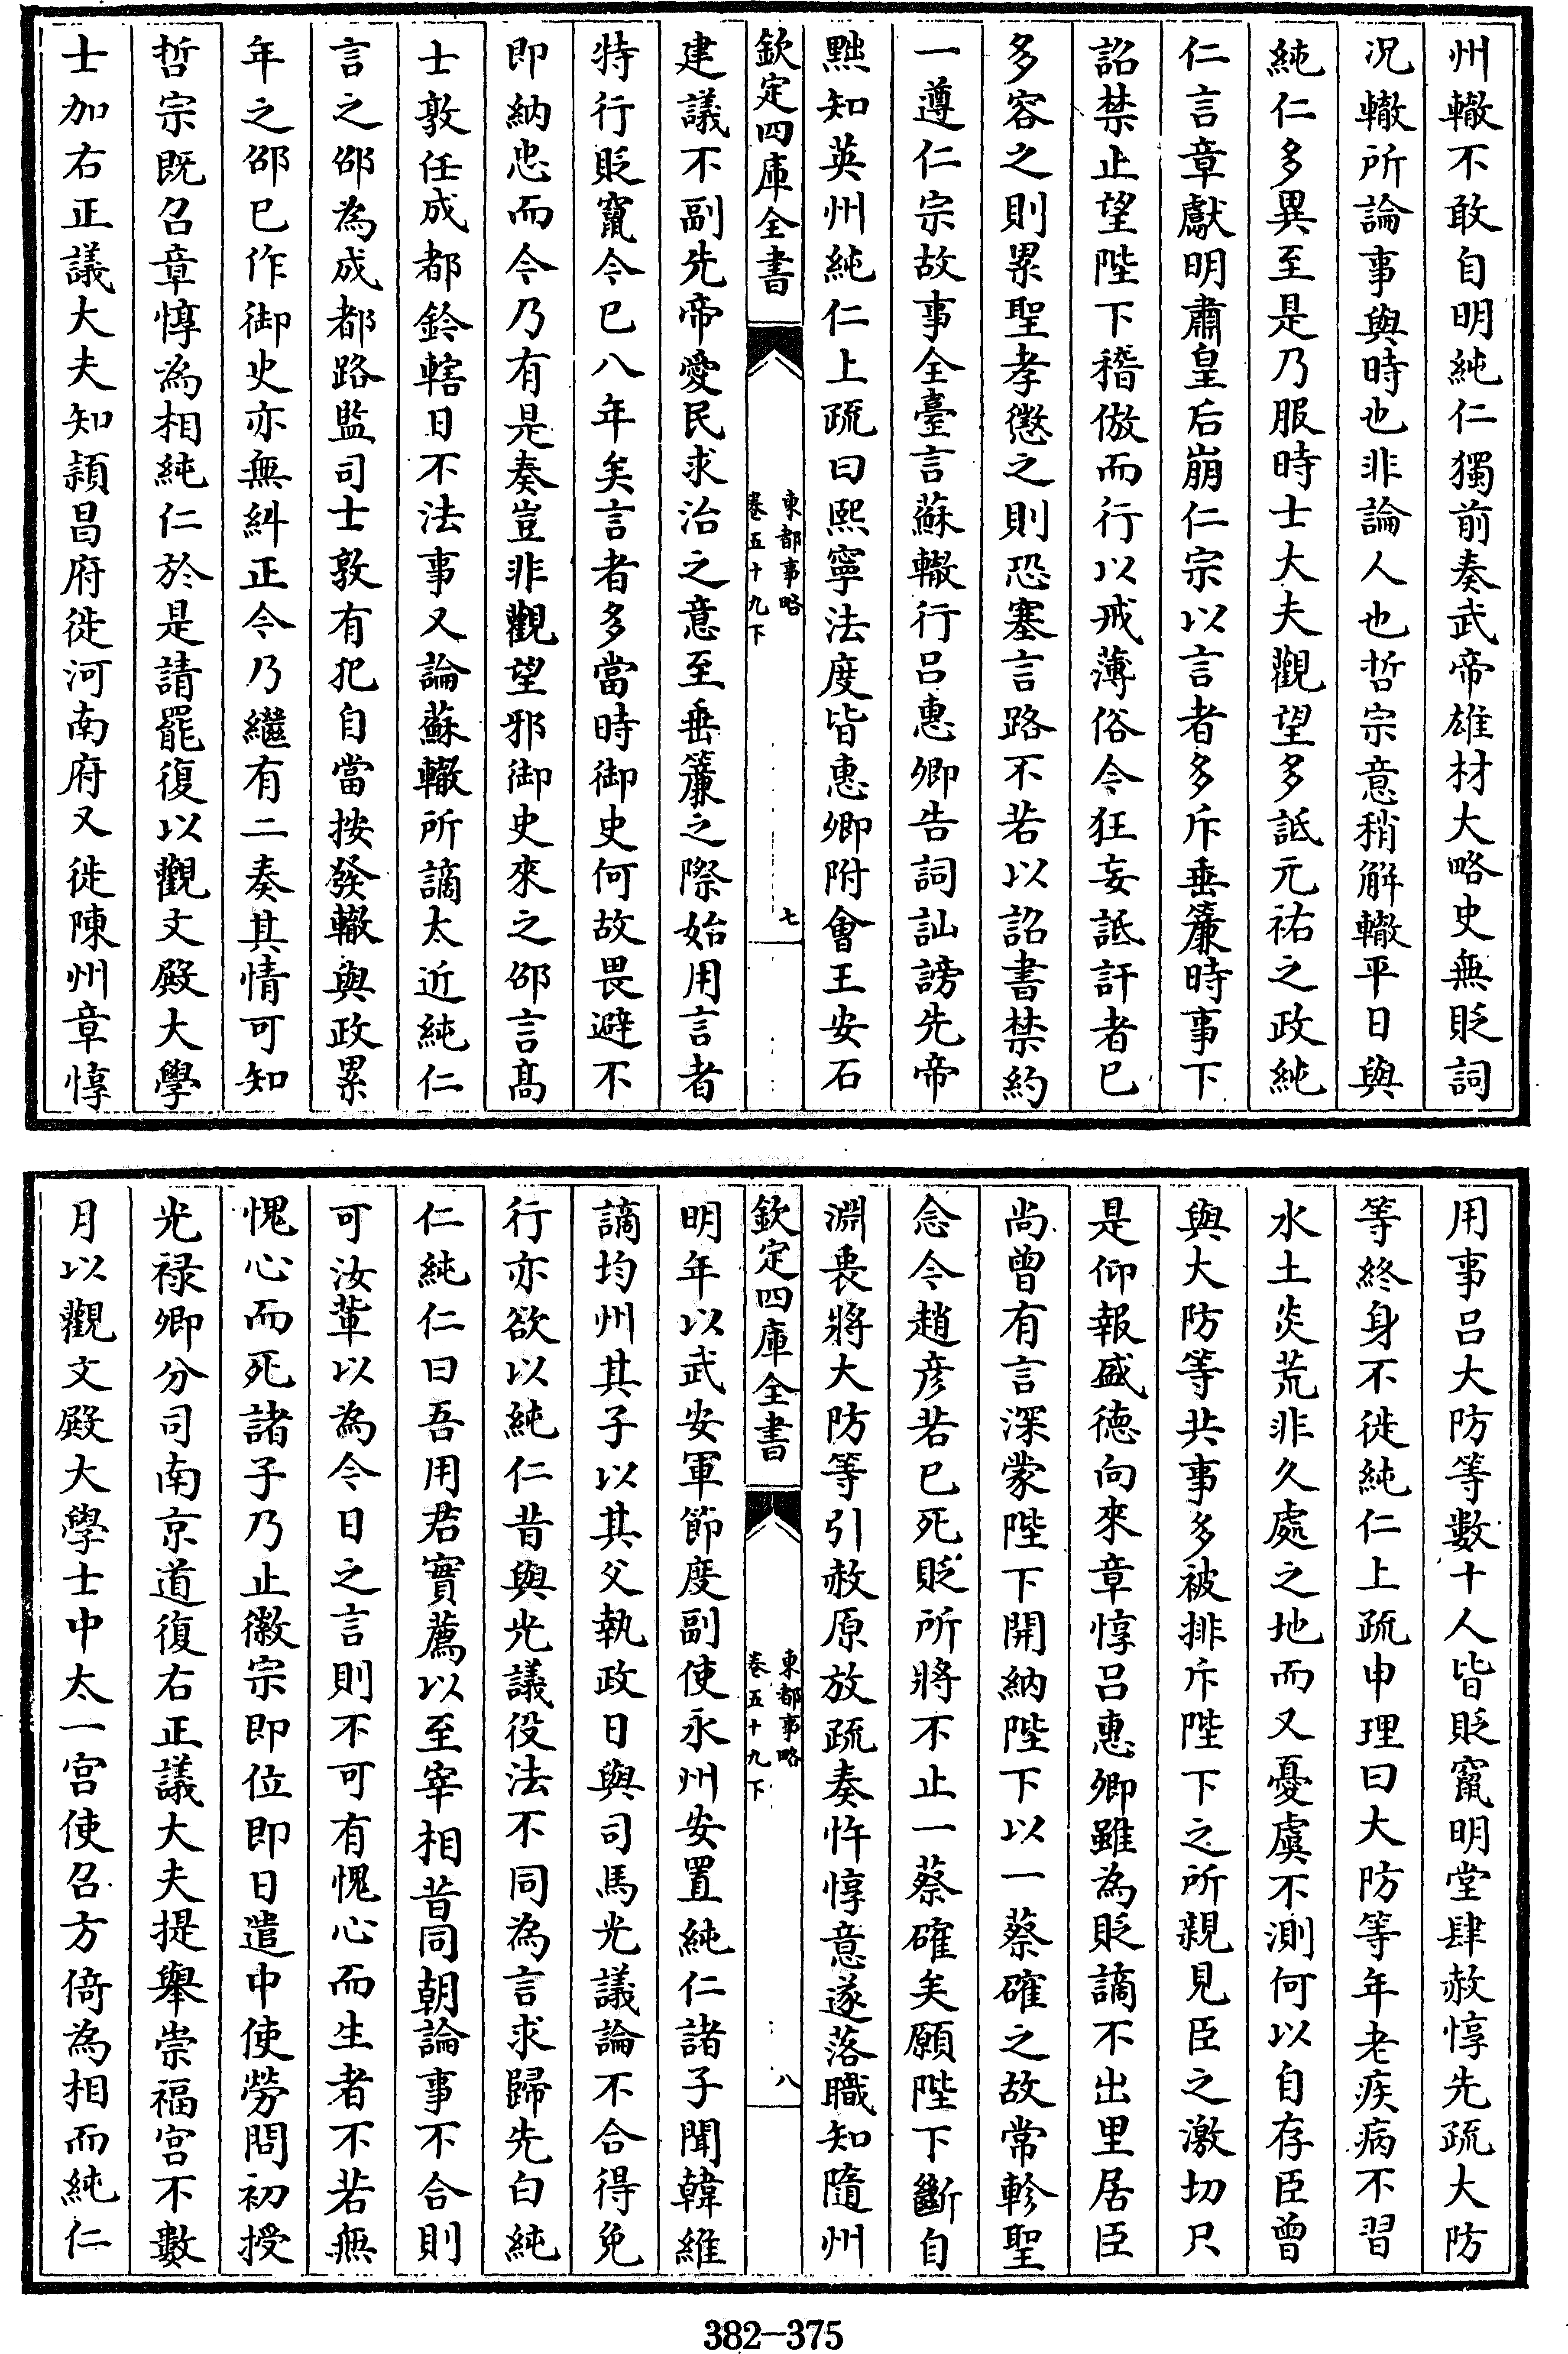 州轍不敢自明純仁獨前奏武帝雄材大略史無貶詞
況轍所論事與時也非論人也哲宗意稍解轍平日與
純仁多異至是乃服時士大夫觀望多詆元祐之政純
仁言章獻明肅皇后崩仁宗以言者多斥垂簾時事下
詔禁止望陛下稽倣而行以戒薄俗令狂妄詆訐者已
多容之則累聖孝懲之則恐塞言路不若以詔書禁約
一遵仁宗故事全臺言蘇轍行呂惠卿告詞訕謗先帝
黜知英州純仁上疏曰熙寧法度皆惠卿附會王安石
欽定四庫全書
東都事略
卷五十九下
七
建議不副先帝愛民求治之意至垂簾之際始用言者
特行貶竄今已八年矣言者多當時御史何故畏避不
即納忠而今乃有是奏豈非觀望邪御史來之邵言髙
士敦任成都鈐轄日不法事又論蘇轍所謫太近純仁
言之邵為成都路監司士敦有犯自當按發轍與政累
年之邵已作御史亦無糾正今乃繼有二奏其情可知
哲宗既召章惇為相純仁於是請罷復以觀文殿大學
士加右正議大夫知頴昌府徙河南府又徙陳州章惇
用事呂大防等數十人皆貶竄明堂肆赦惇先疏大防
等終身不徙純仁上疏申理曰大防等年老疾病不習
水土炎荒非久處之地而又憂虞不測何以自存臣曾
與大防等共事多被排斥陛下之所親見臣之激切只
是仰報盛徳向來章惇呂惠卿雖為貶謫不出里居臣
尚曾有言深蒙陛下開納陛下以一蔡確之故常軫聖
念今趙彦若已死貶所將不止一蔡確矣願陛下斷自
淵衷將大防等引赦原放疏奏忤惇意遂落職知隨州
欽定四庫全書
東都事略
卷五十九下
八
明年以武安軍節度副使永州安置純仁諸子聞韓維
謫均州其子以其父執政日與司馬光議論不合得免
行亦欲以純仁昔與光議役法不同為言求歸先白純
仁純仁曰吾用君實薦以至宰相昔同朝論事不合則
可汝輩以為今日之言則不可有愧心而生者不若無
愧心而死諸子乃止徽宗即位即日遣中使勞問初授
光禄卿分司南京道復右正議大夫提舉崇福宮不數
月以觀文殿大學士中太一宮使召方倚為相而純仁
382-375